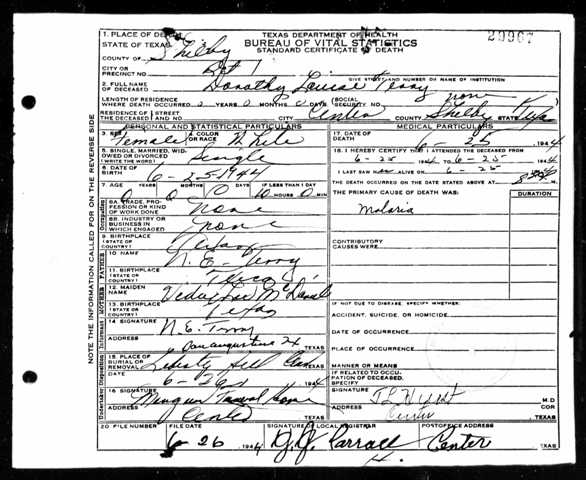 TEXAS DEPARTMENT OF HEALTH
BUREAU OF VITAL STATISTICS
STANDARD CERTIFICATE OF DEATH
20907
1. PLACE OF DEATH
STATE OF TEXAS
COUNTY OF Shelby
CITY OR
PRECINCT NO. Pct 1
GIVE STREET AND NUMBER OR NAME OF INSTITUTION
2. FULL NAME
OF DECEASED Dorothy Louise Terry
LENGTH OF RESIDENCE
WHERE DEATH OCCURRED 0 YEARS 0 MONTHS DAYS (SOCIAL
SECURITY NO. none
RESIDENCE OF (STREET
THE DECEASED AND NO. CITY Center COUNTY Shelby Texas
PERSONAL AND STATISTICAL PARTICULARS
3. SEX Female 4. COLOR
OR RACE White
5. SINGLE, MARRIED, WID-
OWED OR DIVORCED
(WRITE THE WORD) Single
6. DATE OF
BIRTH 6-25-1944
7. AGE YEARS MONTHS DAYS IF LESS THAN 1 DAY
0 0 0 10 HOURS 0 MIN.
8A. TRADE, PROFES-
SION OR KIND
OF WORK DONE None
8B. INDUSTRY OR
BUSINESS IN
WHICH ENGAGED none
9. BIRTHPLACE
(STATE OR
COUNTRY) Texas
10. NAME N. E. Terry
11. BIRTHPLACE
(STATE OR
COUNTRY) Texas
12. MAIDEN
NAME McDaniel
13. BIRTHPLACE
(STATE OR
COUNTRY) Texas
14. SIGNATURE N. E. Terry
ADDRESS San augustine TX TEXAS
15. PLACE OF
BURIAL OR
REMOVAL Liberty Hill Cem
DATE 6-26 1944
16. SIGNATURE Funeral Home
ADDRESS Center TEXAS
MEDICAL PARTICULARS
17. DATE OF
DEATH 6-25 1944
18. I HEREBY CERTIFY THAT I ATTENDED THE DECEASED FROM
6-25 1944 TO 6-25 1944
I LAST SAW ALIVE ON 6-25 1944
THE DEATH OCCURRED ON THE DATE STATED ABOVE AT M.
THE PRIMARY CAUSE OF DEATH WAS: DURATION
Malaria
CONTRIBUTORY
CAUSES WERE:
IF NOT DUE TO DISEASE, SPECIFY WHETHER:
ACCIDENT, SUICIDE, OR HOMICIDE.
DATE OF OCCURRENCE
PLACE OF OCCURRENCE
MANNER OR MEANS
IF RELATED TO OCCU-
PATION OF DECEASED,
SPECIFY
SIGNATURE M.D.
ADDRESS Center COR
TEXAS
20. FILE NUMBER FILE DATE SIGNATURE OF LOCAL REGISTRAR POSTOFFICE ADDRESS
6-26 1944 Center TEXAS
NOTE THE INFORMATION CALLED FOR ON THE REVERSE SIDE
Occupation
FATHER
MOTHER
Informant
Disposition
Undertaker